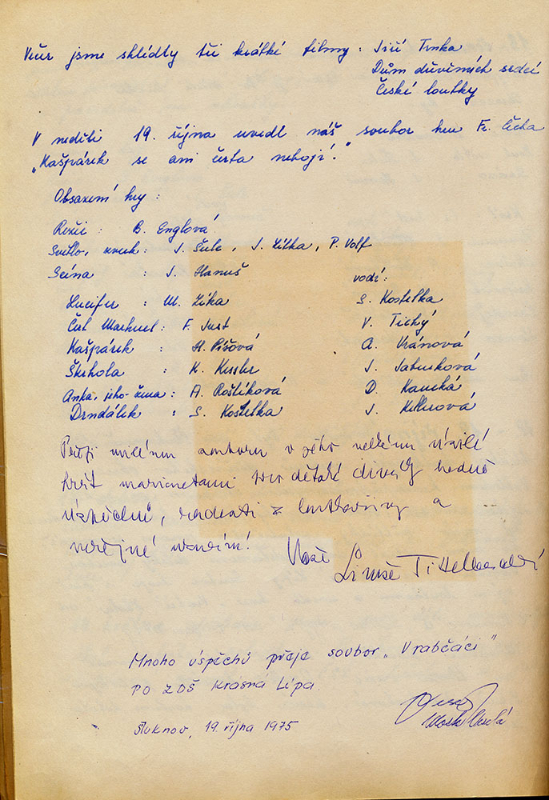 Večer jsme shlédly tři krátké filmy: Jiří Trnka
Dům důvěrných srdcí
České loutky
V neděli 19. října uvedl náš soubor hru Fr. Čecha
„Kašpárek se ani čerta nebojí."
Obsazení hry:
Režie: B. Englová
Světlo, zvuk: J. Šulc, J. Zítka, P. Volf
Scéna : J. Hanuš vodí:
Lucifer : M. Zíka S. Kostelka
Čert Marbuel: F. Just V. Tichý
Kašpárek : H. Píšová A. Vránová
Škrhola : K. Kessler J.
Anka, jeho žena: A. Roštíková D. Kaucká
Drndálek : S. Kostelka J.
Přeji milému souboru v jeho velkém úsilí
hrát marionetami pro dětské diváky hodně
úspěchů, radosti z loutkařiny a
veřejné uznání! Vaše
Mnoho úspěchů přeje soubor „Vrabčáci"
PO ZDŠ Krásná Lípa
Šluknov, 19. října 1975